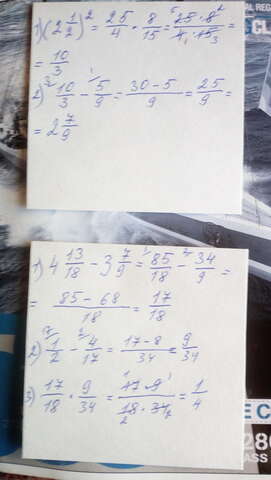 1) (2 1/2)² = 25/4 · 8/15 = 25 · 8/4 · 15 =
= 10/3
2) 10/3 - 5/9 = 30-5/9 = 25/9 =
= 2 7/9
1) 4 13/18 - 3 7/9 = 85/18 - 34/9 =
= 85-68/18 = 17/18
2) 1/2 - 4/17 = 17-8/34 = 9/34
3) 17/18 · 9/34 = 17·9/18·34 = 1/4